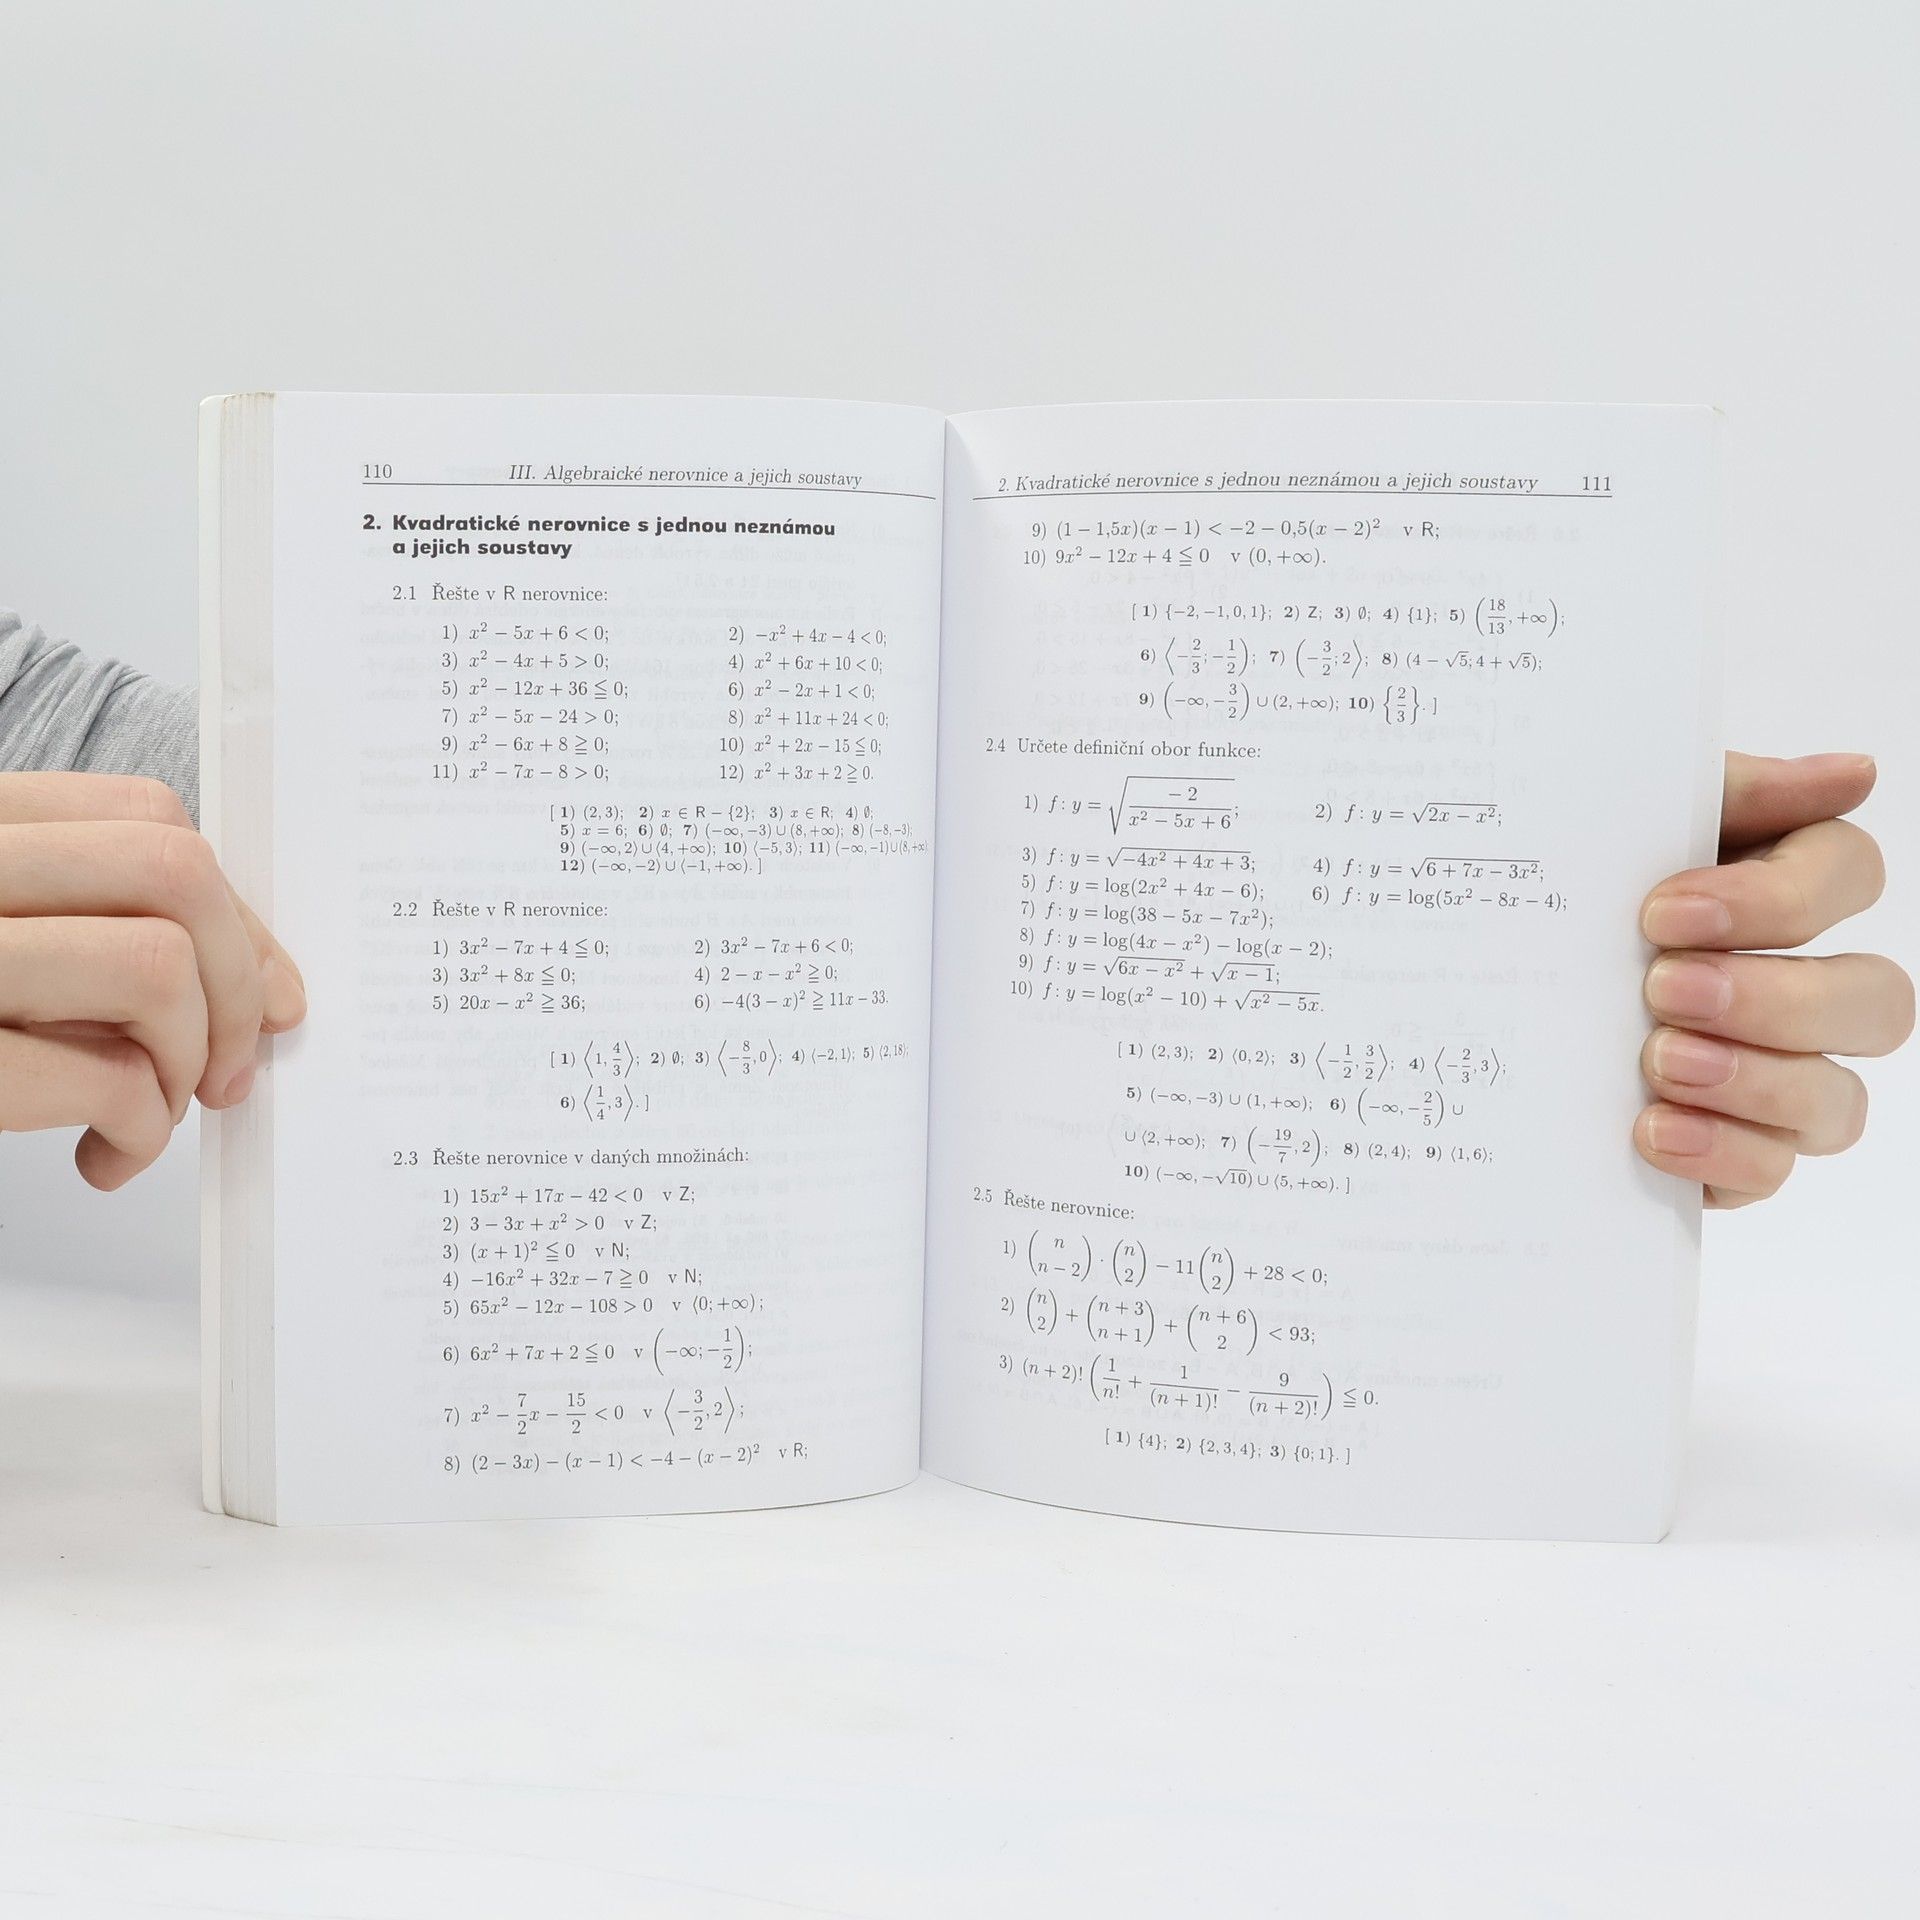 110 III. Algebraické nerovnice a jejich soustavy
2. Kvadratické nerovnice s jednou neznámou
a jejich soustavy
2.1 Řešte v R nerovnice:
1) x² − 5x + 6 < 0; 2) −x² + 4x − 4 < 0;
3) x² − 4x + 5 > 0; 4) x² + 6x + 10 < 0;
5) x² − 12x + 36 ≦ 0; 6) x² − 2x + 1 < 0;
7) x² − 5x − 24 > 0; 8) x² + 11x + 24 < 0;
9) x² − 6x + 8 ≧ 0; 10) x² + 2x − 15 ≦ 0;
11) x² − 7x − 8 > 0; 12) x² + 3x + 2 ≧ 0.
[ 1) (2, 3); 2) x ∈ R − {2}; 3) x ∈ R; 4) ∅;
5) x = 6; 6) ∅; 7) (−∞, −3) ∪ (8, +∞); 8) (−8, −3);
9) (−∞, 2⟩ ∪ ⟨4, +∞); 10) ⟨−5, 3⟩; 11) (−∞, −1) ∪ (8, +∞)
12) (−∞, −2⟩ ∪ ⟨−1, +∞). ]
2.2 Řešte v R nerovnice:
1) 3x² − 7x + 4 ≦ 0; 2) 3x² − 7x + 6 < 0;
3) 3x² + 8x ≦ 0; 4) 2 − x − x² ≧ 0;
5) 20x − x² ≧ 36; 6) −4(3 − x)² ≧ 11x − 33.
[ 1) ⟨1, 4/3⟩; 2) ∅; 3) ⟨−8/3, 0⟩; 4) ⟨−2, 1⟩; 5) ⟨2, 18⟩;
6) ⟨1/4, 3⟩. ]
2.3 Řešte nerovnice v daných množinách:
1) 15x² + 17x − 42 < 0 v Z;
2) 3 − 3x + x² > 0 v Z;
3) (x + 1)² ≦ 0 v N;
4) −16x² + 32x − 7 ≧ 0 v N;
5) 65x² − 12x − 108 > 0 v ⟨0; +∞);
6) 6x² + 7x + 2 ≦ 0 v (−∞; −1/2);
7) x² − 7/2x − 15/2 < 0 v ⟨−3/2, 2⟩;
8) (2 − 3x) − (x − 1) < −4 − (x − 2)² v R;
2. Kvadratické nerovnice s jednou neznámou a jejich soustavy 111
9) (1 − 1,5x)(x − 1) < −2 − 0,5(x − 2)² v R;
10) 9x² − 12x + 4 ≦ 0 v (0, +∞).
[ 1) {−2, −1, 0, 1}; 2) Z; 3) ∅; 4) {1}; 5) (18/13, +∞);
6) ⟨−2/3; −1/2); 7) (−3/2; 2⟩; 8) (4 − √5; 4 + √5);
9) (−∞, −3/2) ∪ (2, +∞); 10) {2/3}. ]
2.4 Určete definiční obor funkce:
1) f: y = √(−2/(x² − 5x + 6)); 2) f: y = √(2x − x²);
3) f: y = √(−4x² + 4x + 3); 4) f: y = √(6 + 7x − 3x²);
5) f: y = log(2x² + 4x − 6); 6) f: y = log(5x² − 8x − 4);
7) f: y = log(38 − 5x − 7x²);
8) f: y = log(4x − x²) − log(x − 2);
9) f: y = √(6x − x²) + √(x − 1);
10) f: y = log(x² − 10) + √(x² − 5x).
[ 1) (2, 3); 2) ⟨0, 2⟩; 3) ⟨−1/2, 3/2⟩; 4) ⟨−2/3, 3⟩;
5) (−∞, −3) ∪ (1, +∞); 6) (−∞, −2/5) ∪
∪ (2, +∞); 7) (−19/7, 2); 8) (2, 4); 9) ⟨1, 6⟩;
10) (−∞, −√10) ∪ ⟨5, +∞). ]
2.5 Řešte nerovnice:
1) (n / n − 2) · (n / 2) − 11(n / 2) + 28 < 0;
2) (n / 2) + (n + 3 / n + 1) + (n + 6 / 2) < 93;
3) (n + 2)! (1/n! + 1/(n + 1)! − 9/(n + 2)!) ≦ 0.
[ 1) {4}; 2) {2, 3, 4}; 3) {0; 1}. ]